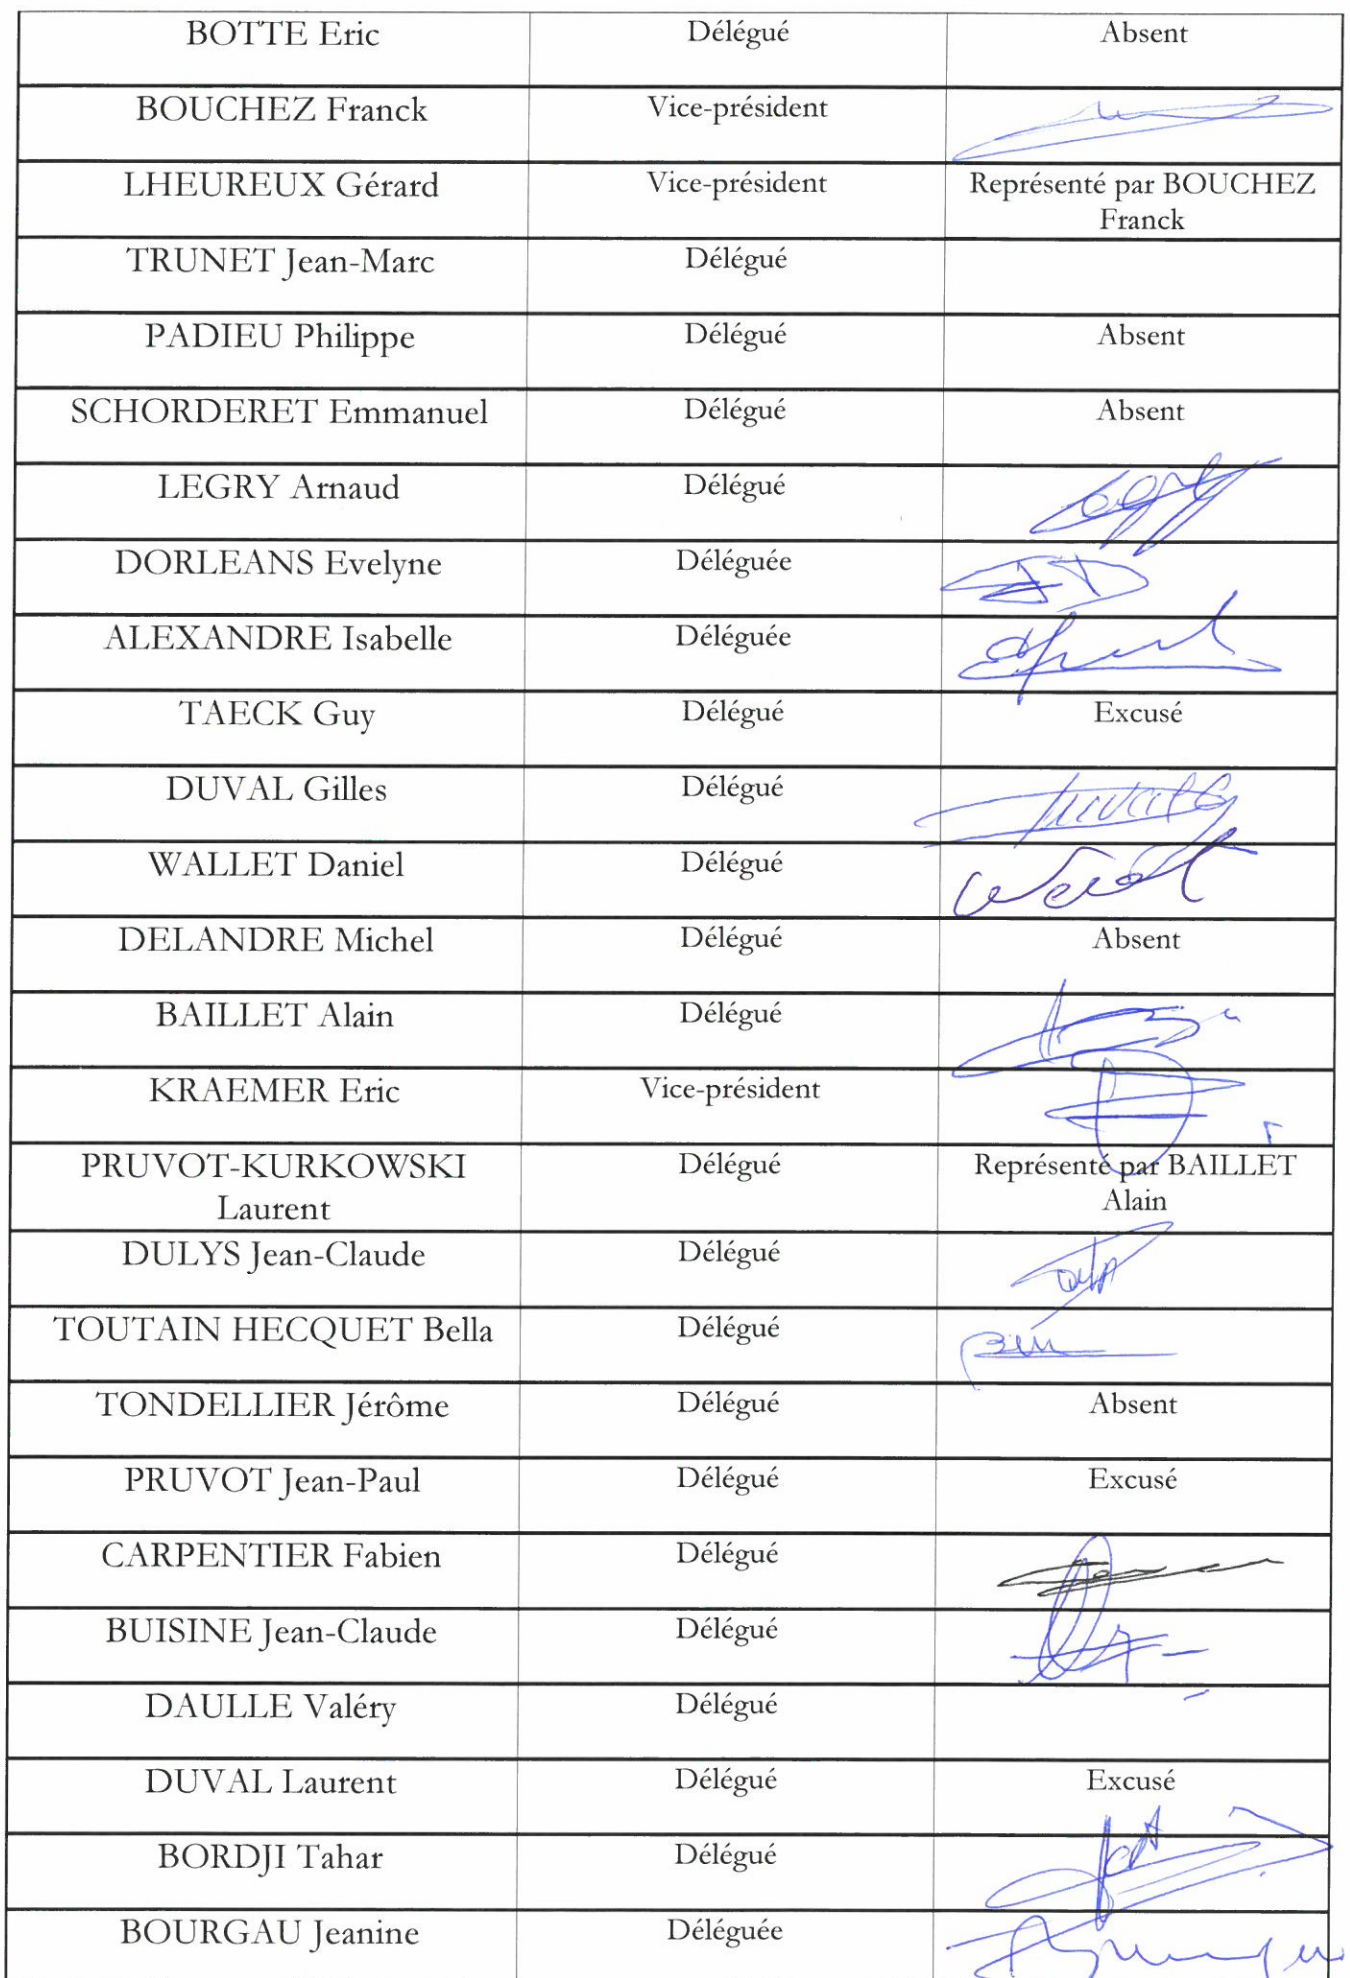 BOTTE Eric Délégué Absent
BOUCHEZ Franck Vice-président
LHEUREUX Gérard Vice-président Représenté par BOUCHEZ
Franck
TRUNET Jean-Marc Délégué
PADIEU Philippe Délégué Absent
SCHORDERET Emmanuel Délégué Absent
LEGRY Arnaud Délégué
DORLEANS Evelyne Déléguée
ALEXANDRE Isabelle Déléguée
TAECK Guy Délégué Excusé
DUVAL Gilles Délégué
WALLET Daniel Délégué
DELANDRE Michel Délégué Absent
BAILLET Alain Délégué
KRAEMER Eric Vice-président
PRUVOT-KURKOWSKI Délégué Représenté par BAILLET
Laurent Alain
DULYS Jean-Claude Délégué
TOUTAIN HECQUET Bella Délégué
TONDELLIER Jérôme Délégué Absent
PRUVOT Jean-Paul Délégué Excusé
CARPENTIER Fabien Délégué
BUISINE Jean-Claude Délégué
DAULLE Valéry Délégué
DUVAL Laurent Délégué Excusé
BORDJI Tahar Délégué
BOURGAU Jeanine Déléguée